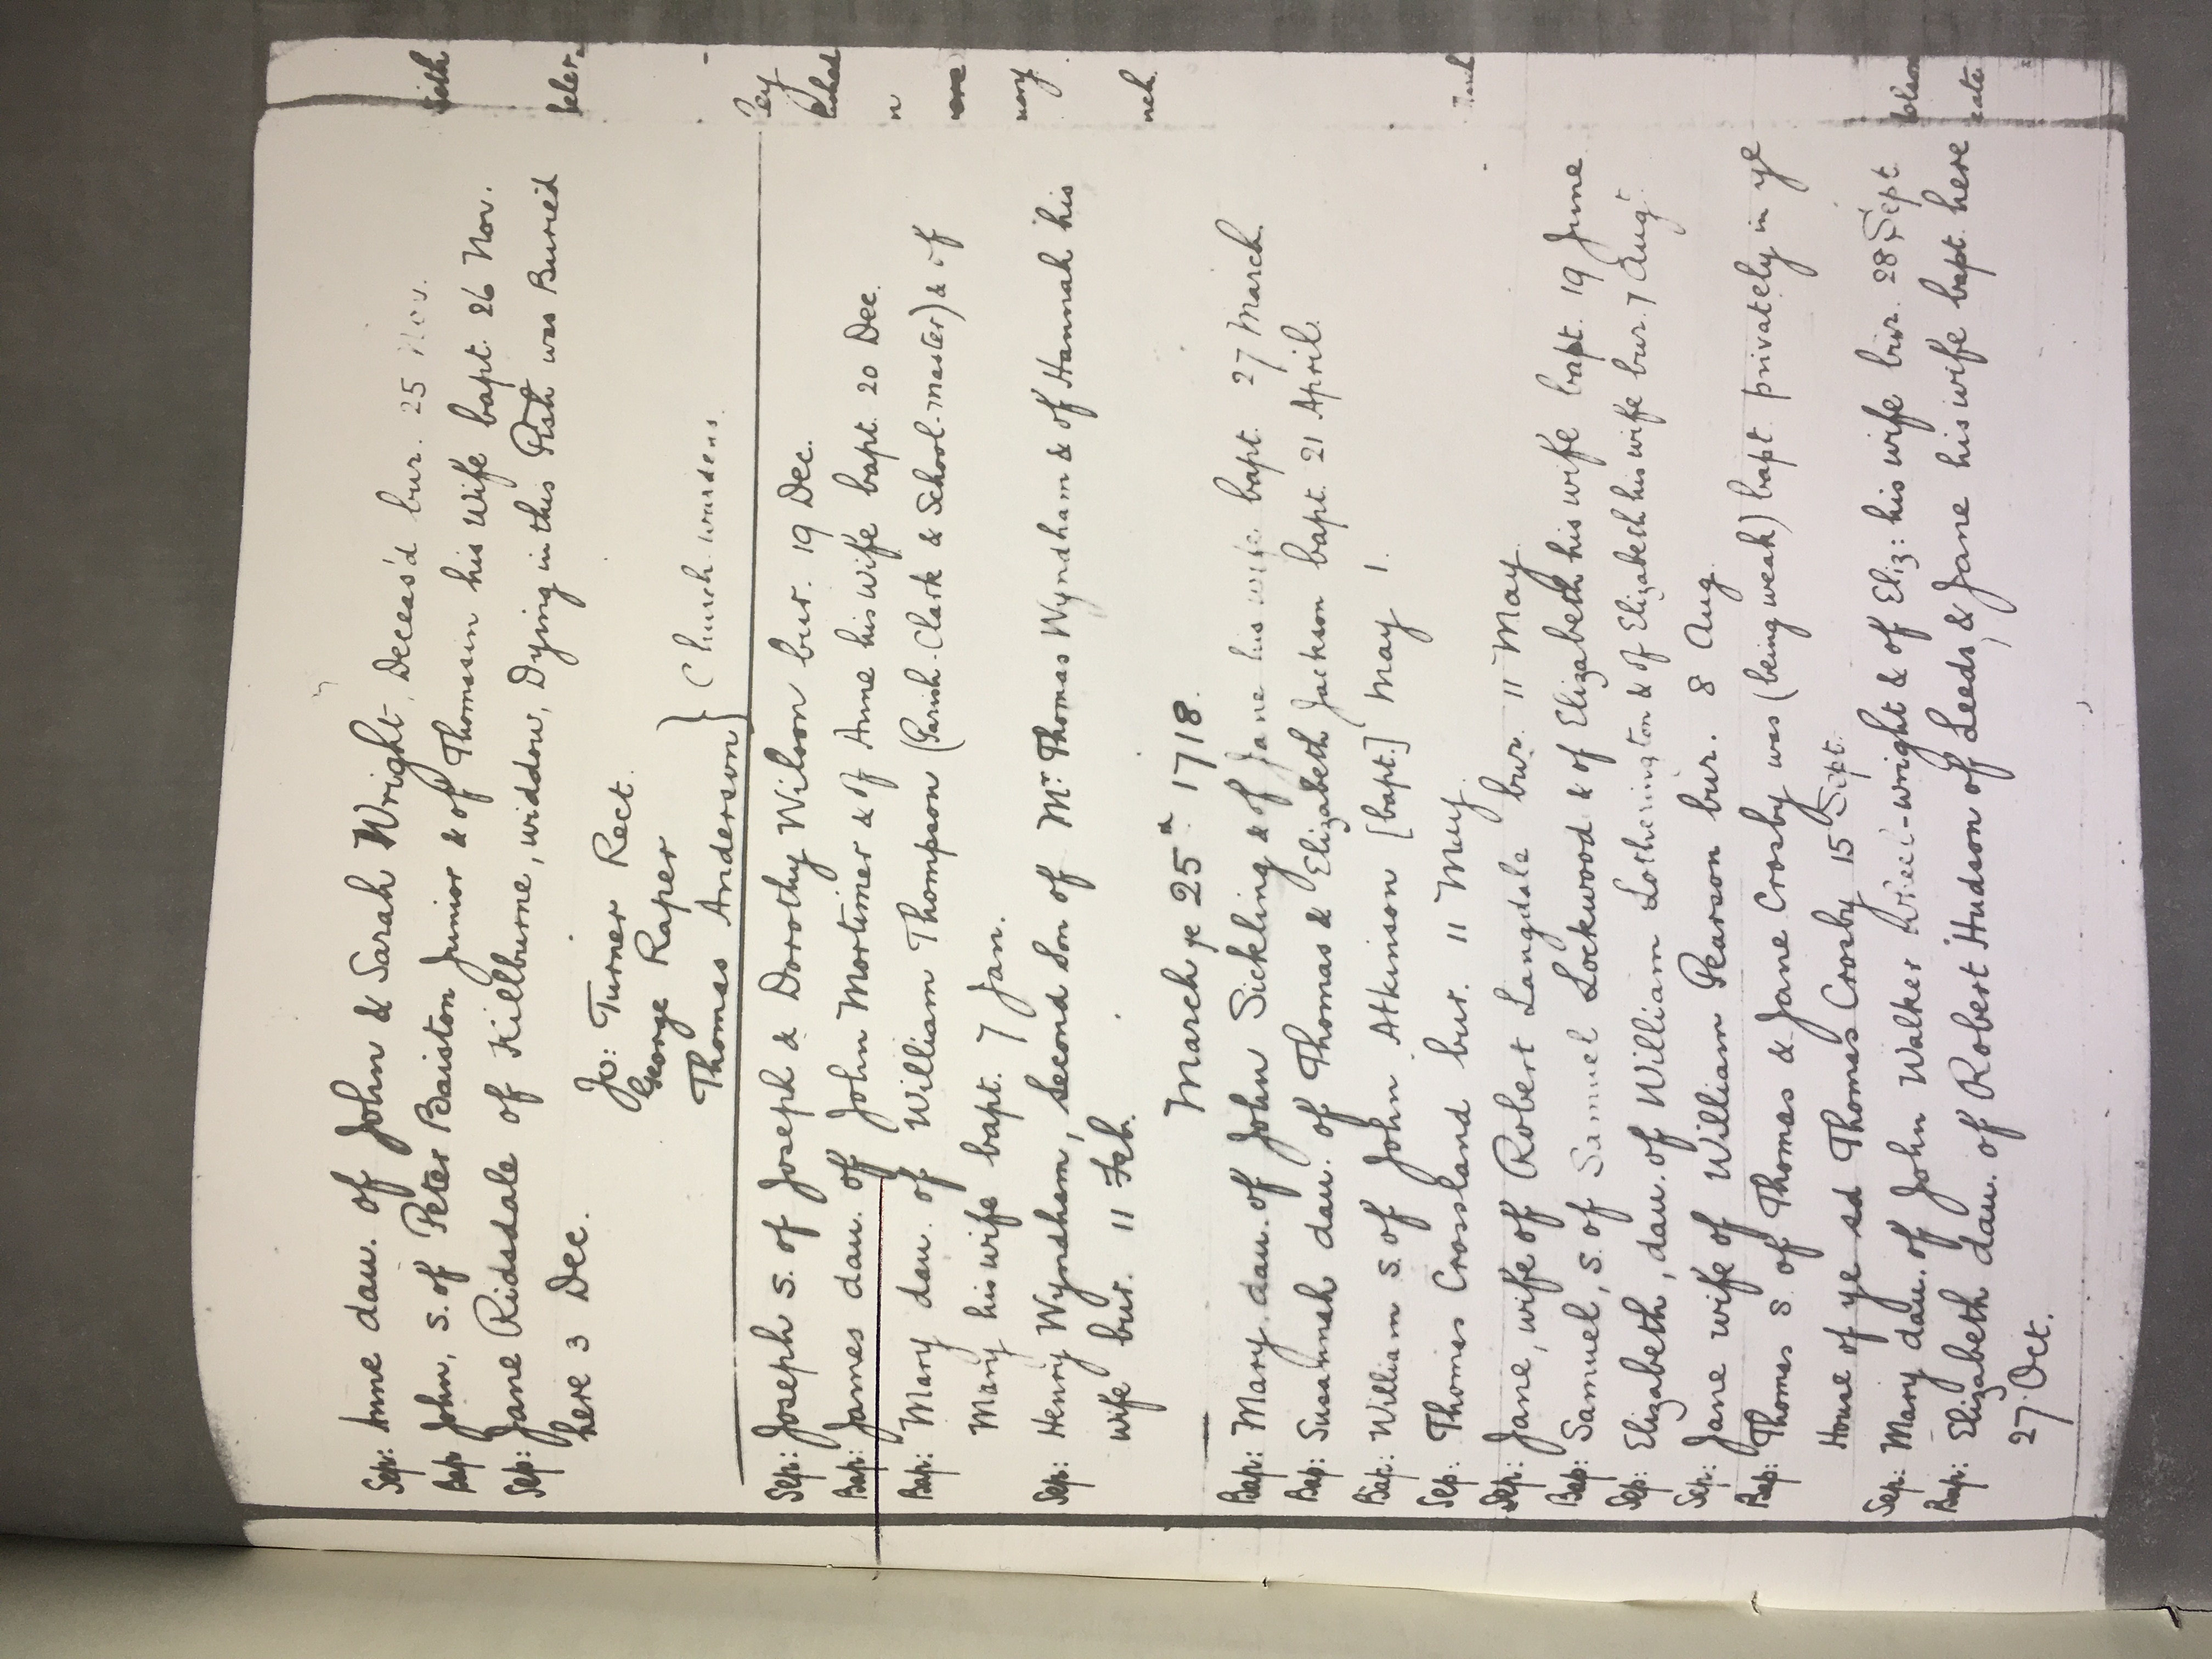 Sep: Anne dau. of John & Sarah Wright, Deceas'd bur. 25 Nov.
Bap: John, s. of Peter Baiston Junior & of Thomasin his Wife bapt. 26 Nov.
Sep: Jane Ridsdale of Kilburne, widdow, Dying in this Prsh was Buried
here 3 Dec.
Jo: Turner Rect.
George Raper
Thomas Anderson } Church-wardens.
Sep: Joseph s. of Joseph & Dorothy Wilson bur. 19 Dec.
Bap: James dau. of John Mortimer & of Anne his Wife bapt. 20 Dec.
Bap: Mary dau. of William Thompson (Parish-Clark & School-master) & of
Mary his wife bapt. 7 Jan.
Sep: Henry Wyndham, Second Son of Mr Thomas Wyndham & of Hannah his
wife bur. 11 Feb.
March ye 25th 1718.
Bap: Mary dau. of John Sickling & of Jane his wife bapt. 27 March.
Bap: Susannah dau. of Thomas & Elizabeth Jackson bapt. 21 April.
Bap: William s. of John Atkinson [bapt.] May 1.
Sep: Thomas Crossland bur. 11 May.
Sep: Jane, wife of Robert Langdale bur. 11 May.
Bap: Samuel, s. of Samuel Lockwood & of Elizabeth his wife bapt. 19 June
Sep: Elizabeth, dau. of William Lotherington & of Elizabeth his wife bur. 7 Augt.
Sep: Jane wife of William Pearson bur. 8 Aug.
Bap: Thomas s. of Thomas & Jane Crosby was (being weak) bapt. privately in ye
House of ye sd Thomas Crosby 15 Sept.
Sep: Mary dau. of John Walker Wheel-wright & of Eliz: his wife bur. 28 Sept.
Bap: Elizabeth dau. of Robert Hudson of Leeds, & Jane his wife bapt. here
27 Oct.